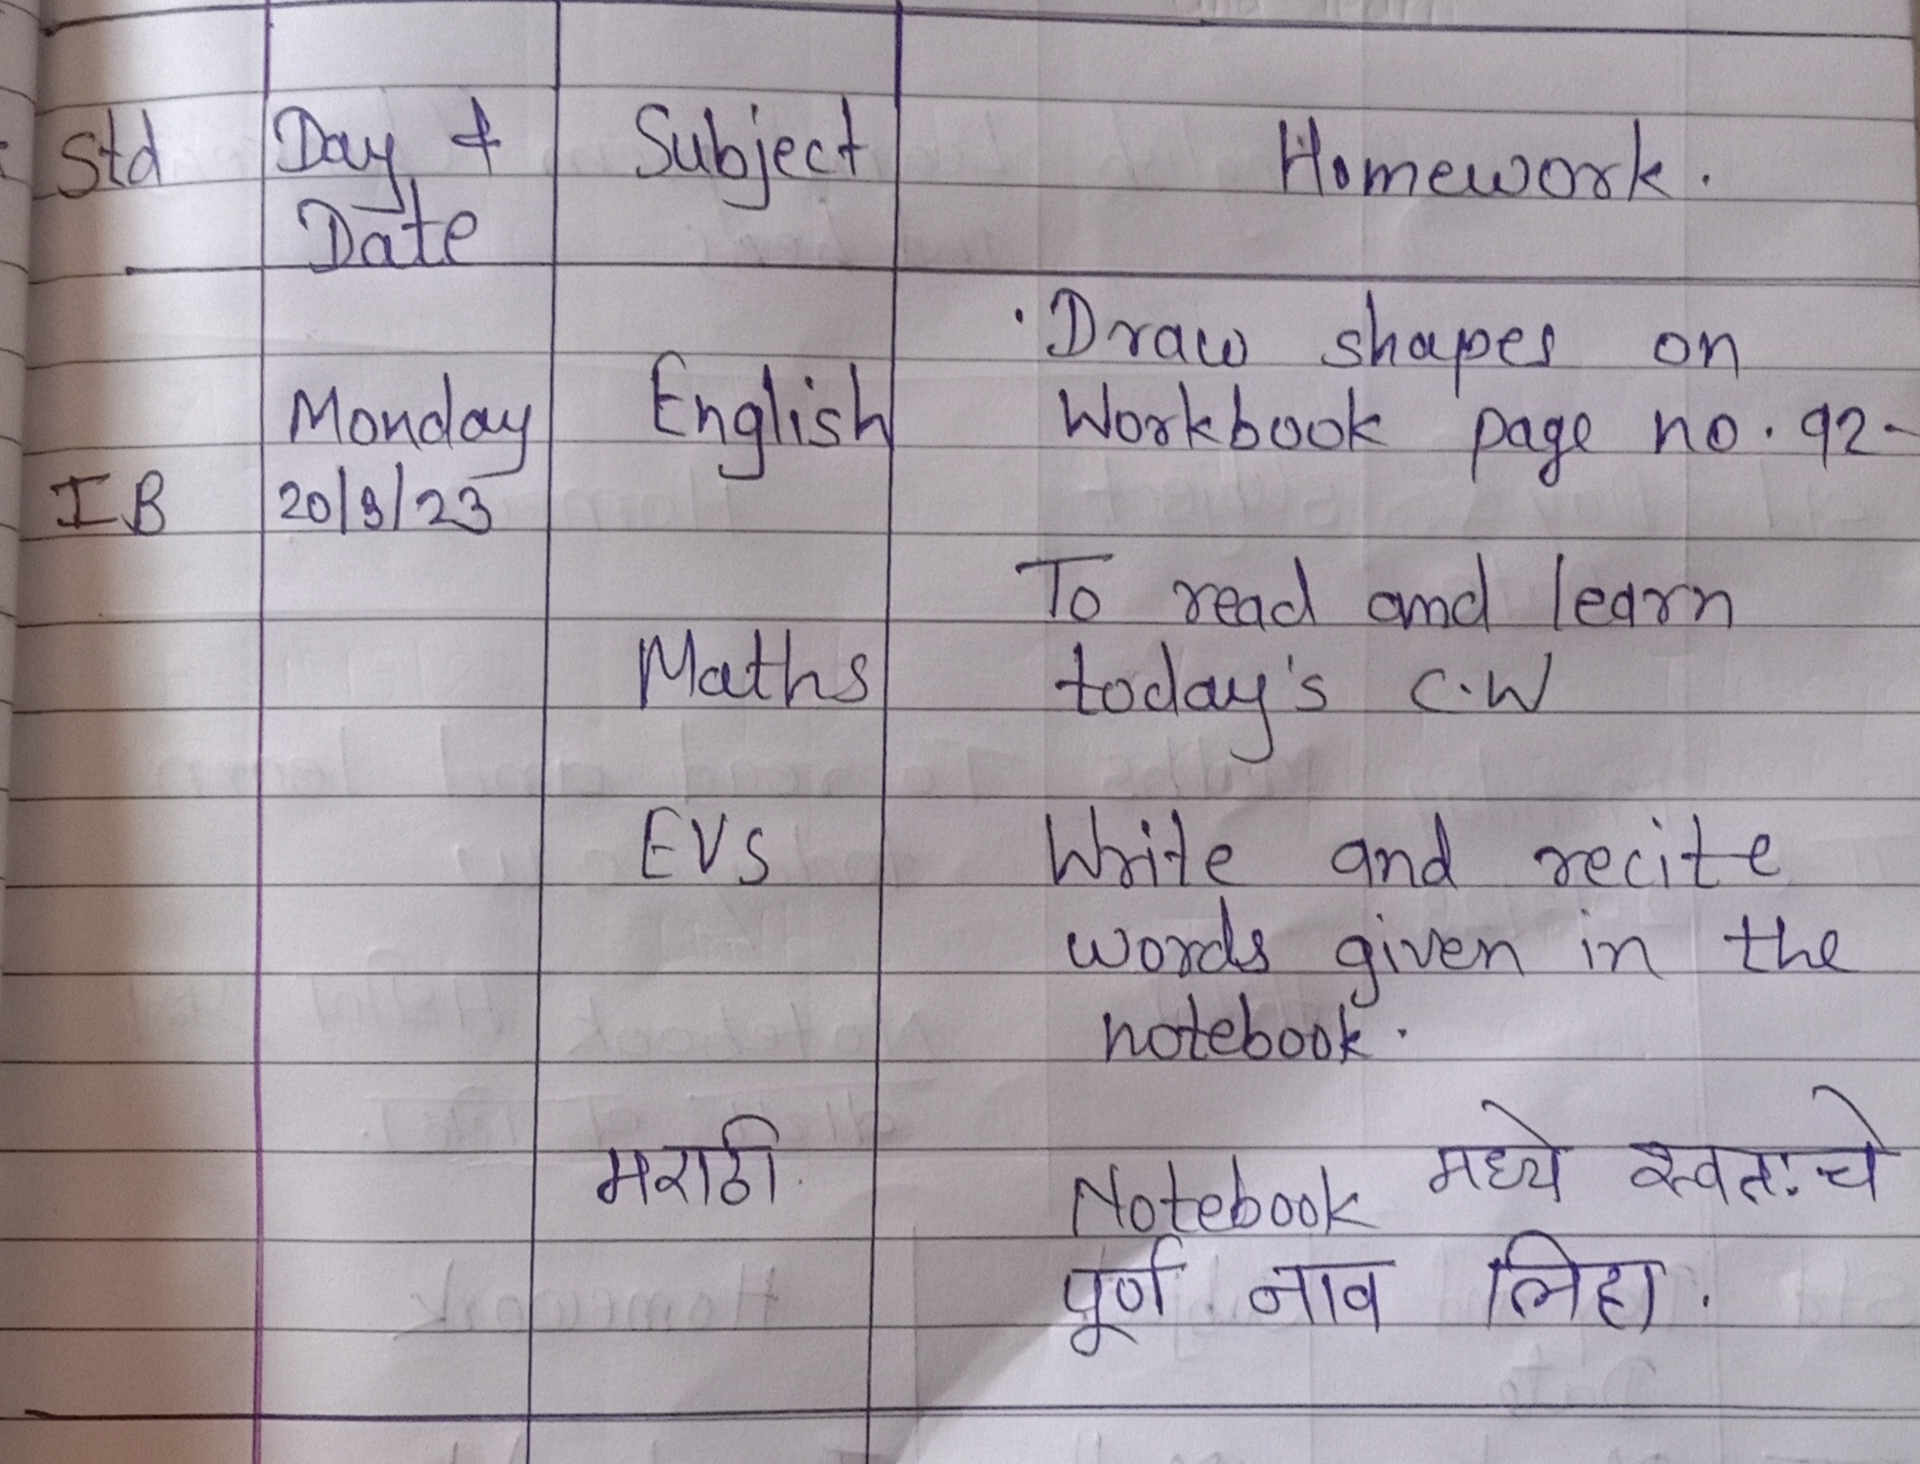 Std Day & Subject Homework.
Date
· Draw shapes on
Monday English Workbook page no. 92-
I B 20/3/23
To read and learn
Maths today's C.W
EVS Write and recite
words given in the
notebook.
मराठी. Notebook मध्ये स्वतःचे
पूर्ण नाव लिहा.